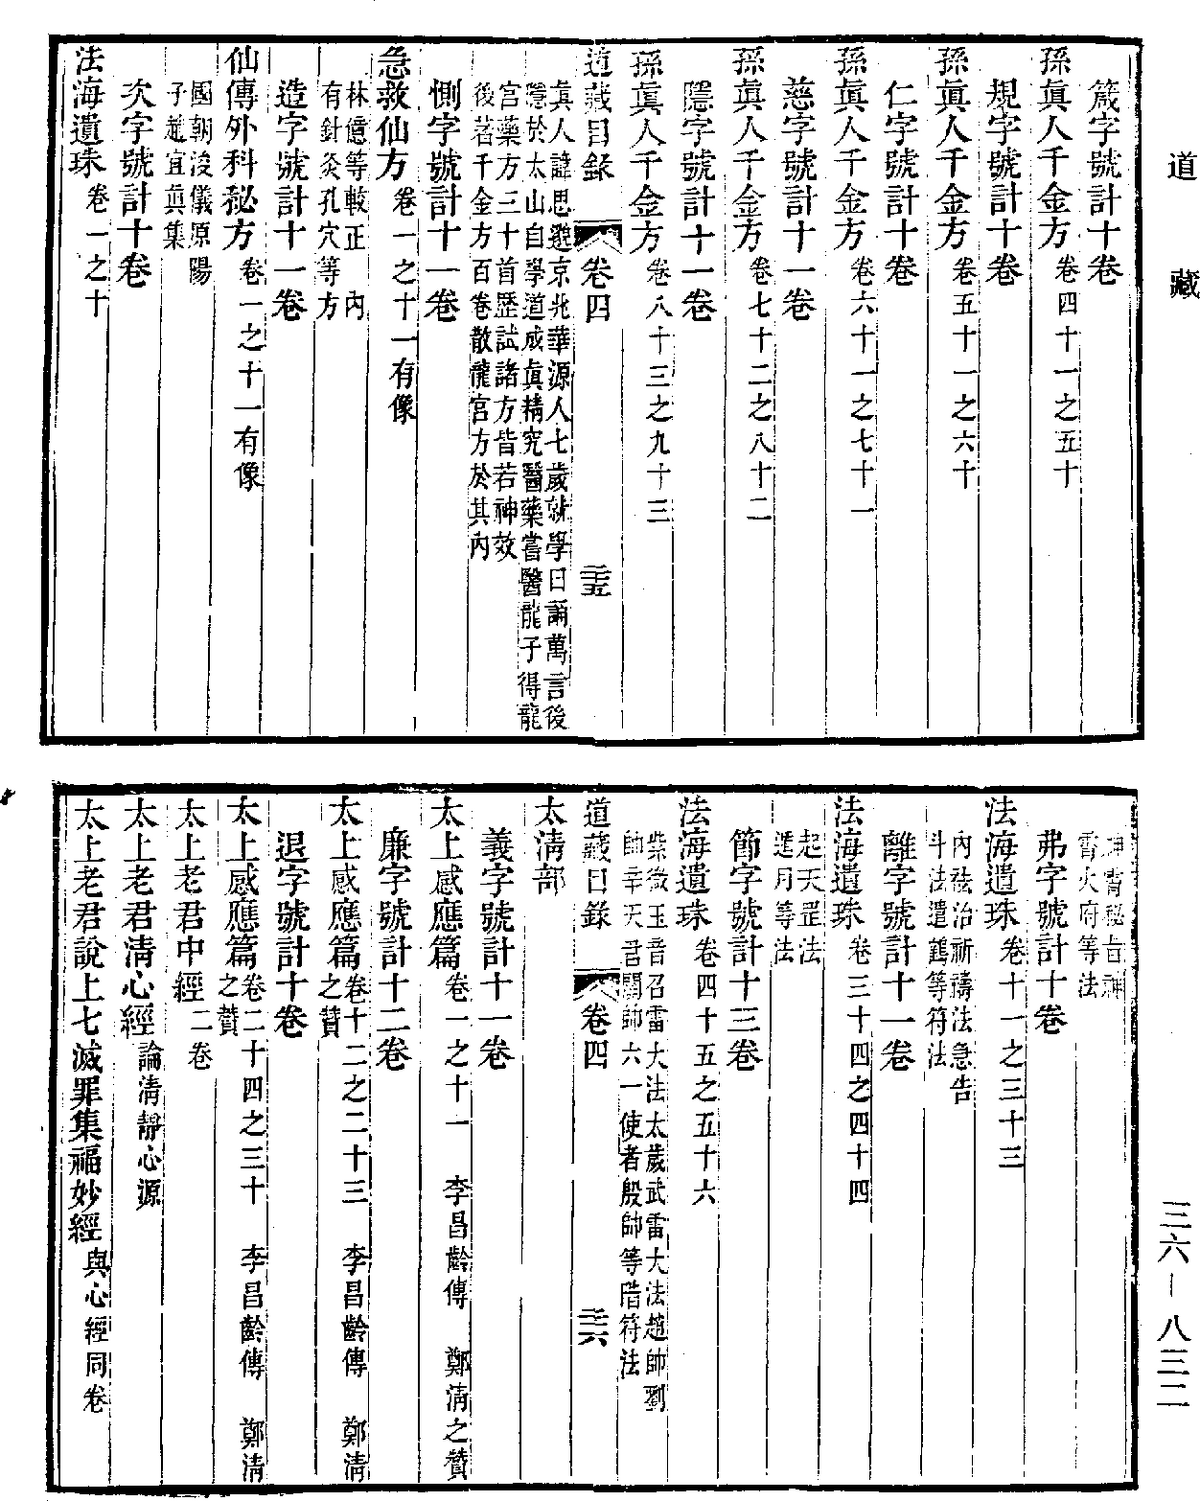 道藏
箴字號計十卷
孫眞人千金方 卷四十一之五十
規字號計十卷
孫眞人千金方 卷五十一之六十
仁字號計十卷
孫眞人千金方 卷六十一之七十一
慈字號計十一卷
孫眞人千金方 卷七十二之八十二
隱字號計十一卷
孫眞人千金方 卷八十三之九十三
道藏目錄 卷四 二十五
眞人諱思邈京兆華源人七歲就學日誦萬言後
隱於太山自學道成眞精究醫藥嘗醫龍子得龍
宮藥方三十首歷試諸方皆若神效
後著千金方百卷散龍宮方於其內
惻字號計十一卷
急救仙方 卷一之十一有像
林億等較正 內
有針灸孔穴等方
造字號計十一卷
仙傳外科秘方 卷一之十一有像
國朝浚儀原陽
子趙宜眞集
次字號計十卷
法海遺珠 卷一之十
神霄秘旨神
霄火府等法
弗字號計十卷
法海遺珠 卷十一之三十三
內祛治祈禱法急告
斗法遣鶴等符法
離字號計十一卷
法海遺珠 卷三十四之四十四
起天罡法
遁月等法
節字號計十三卷
法海遺珠 卷四十五之五十六
紫微玉音召雷大法太歲武雷大法趙帥劉
帥辛天君關帥六一使者殷帥等階符法
道藏目錄 卷四 二十六
太淸部
義字號計十一卷
太上感應篇 卷一之十一 李昌齡傳 鄭淸之贊
廉字號計十二卷
太上感應篇 卷十二之二十三 李昌齡傳 鄭淸之贊
退字號計十卷
太上感應篇 卷二十四之三十 李昌齡傳 鄭淸之贊
太上老君中經 二卷
太上老君淸心經 論淸靜心源
太上老君說上七滅罪集福妙經 與心經同卷
三六—八三二